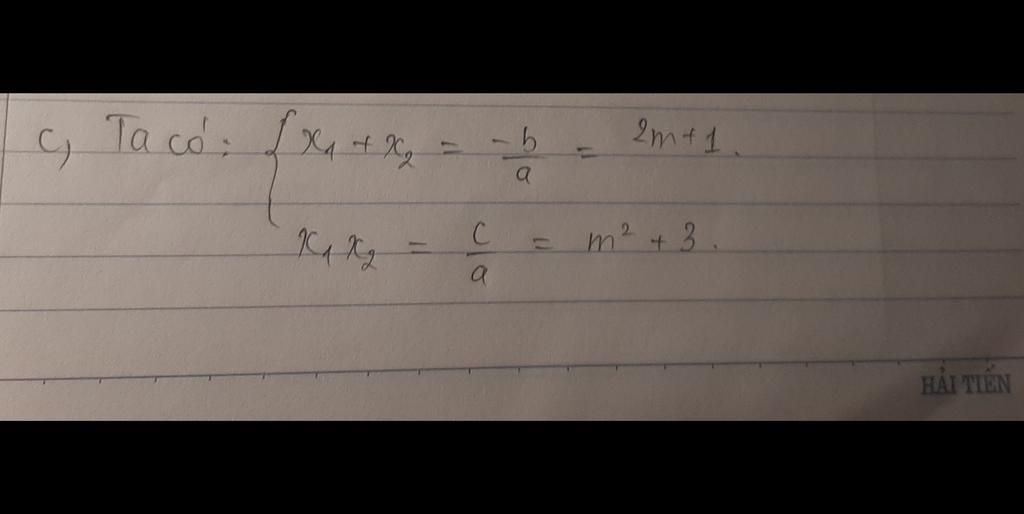 c, Ta có: { x₁ + x₂ = -b/a = 2m+1.
x₁ x₂ = c/a = m² + 3.
HẢI TIẾN